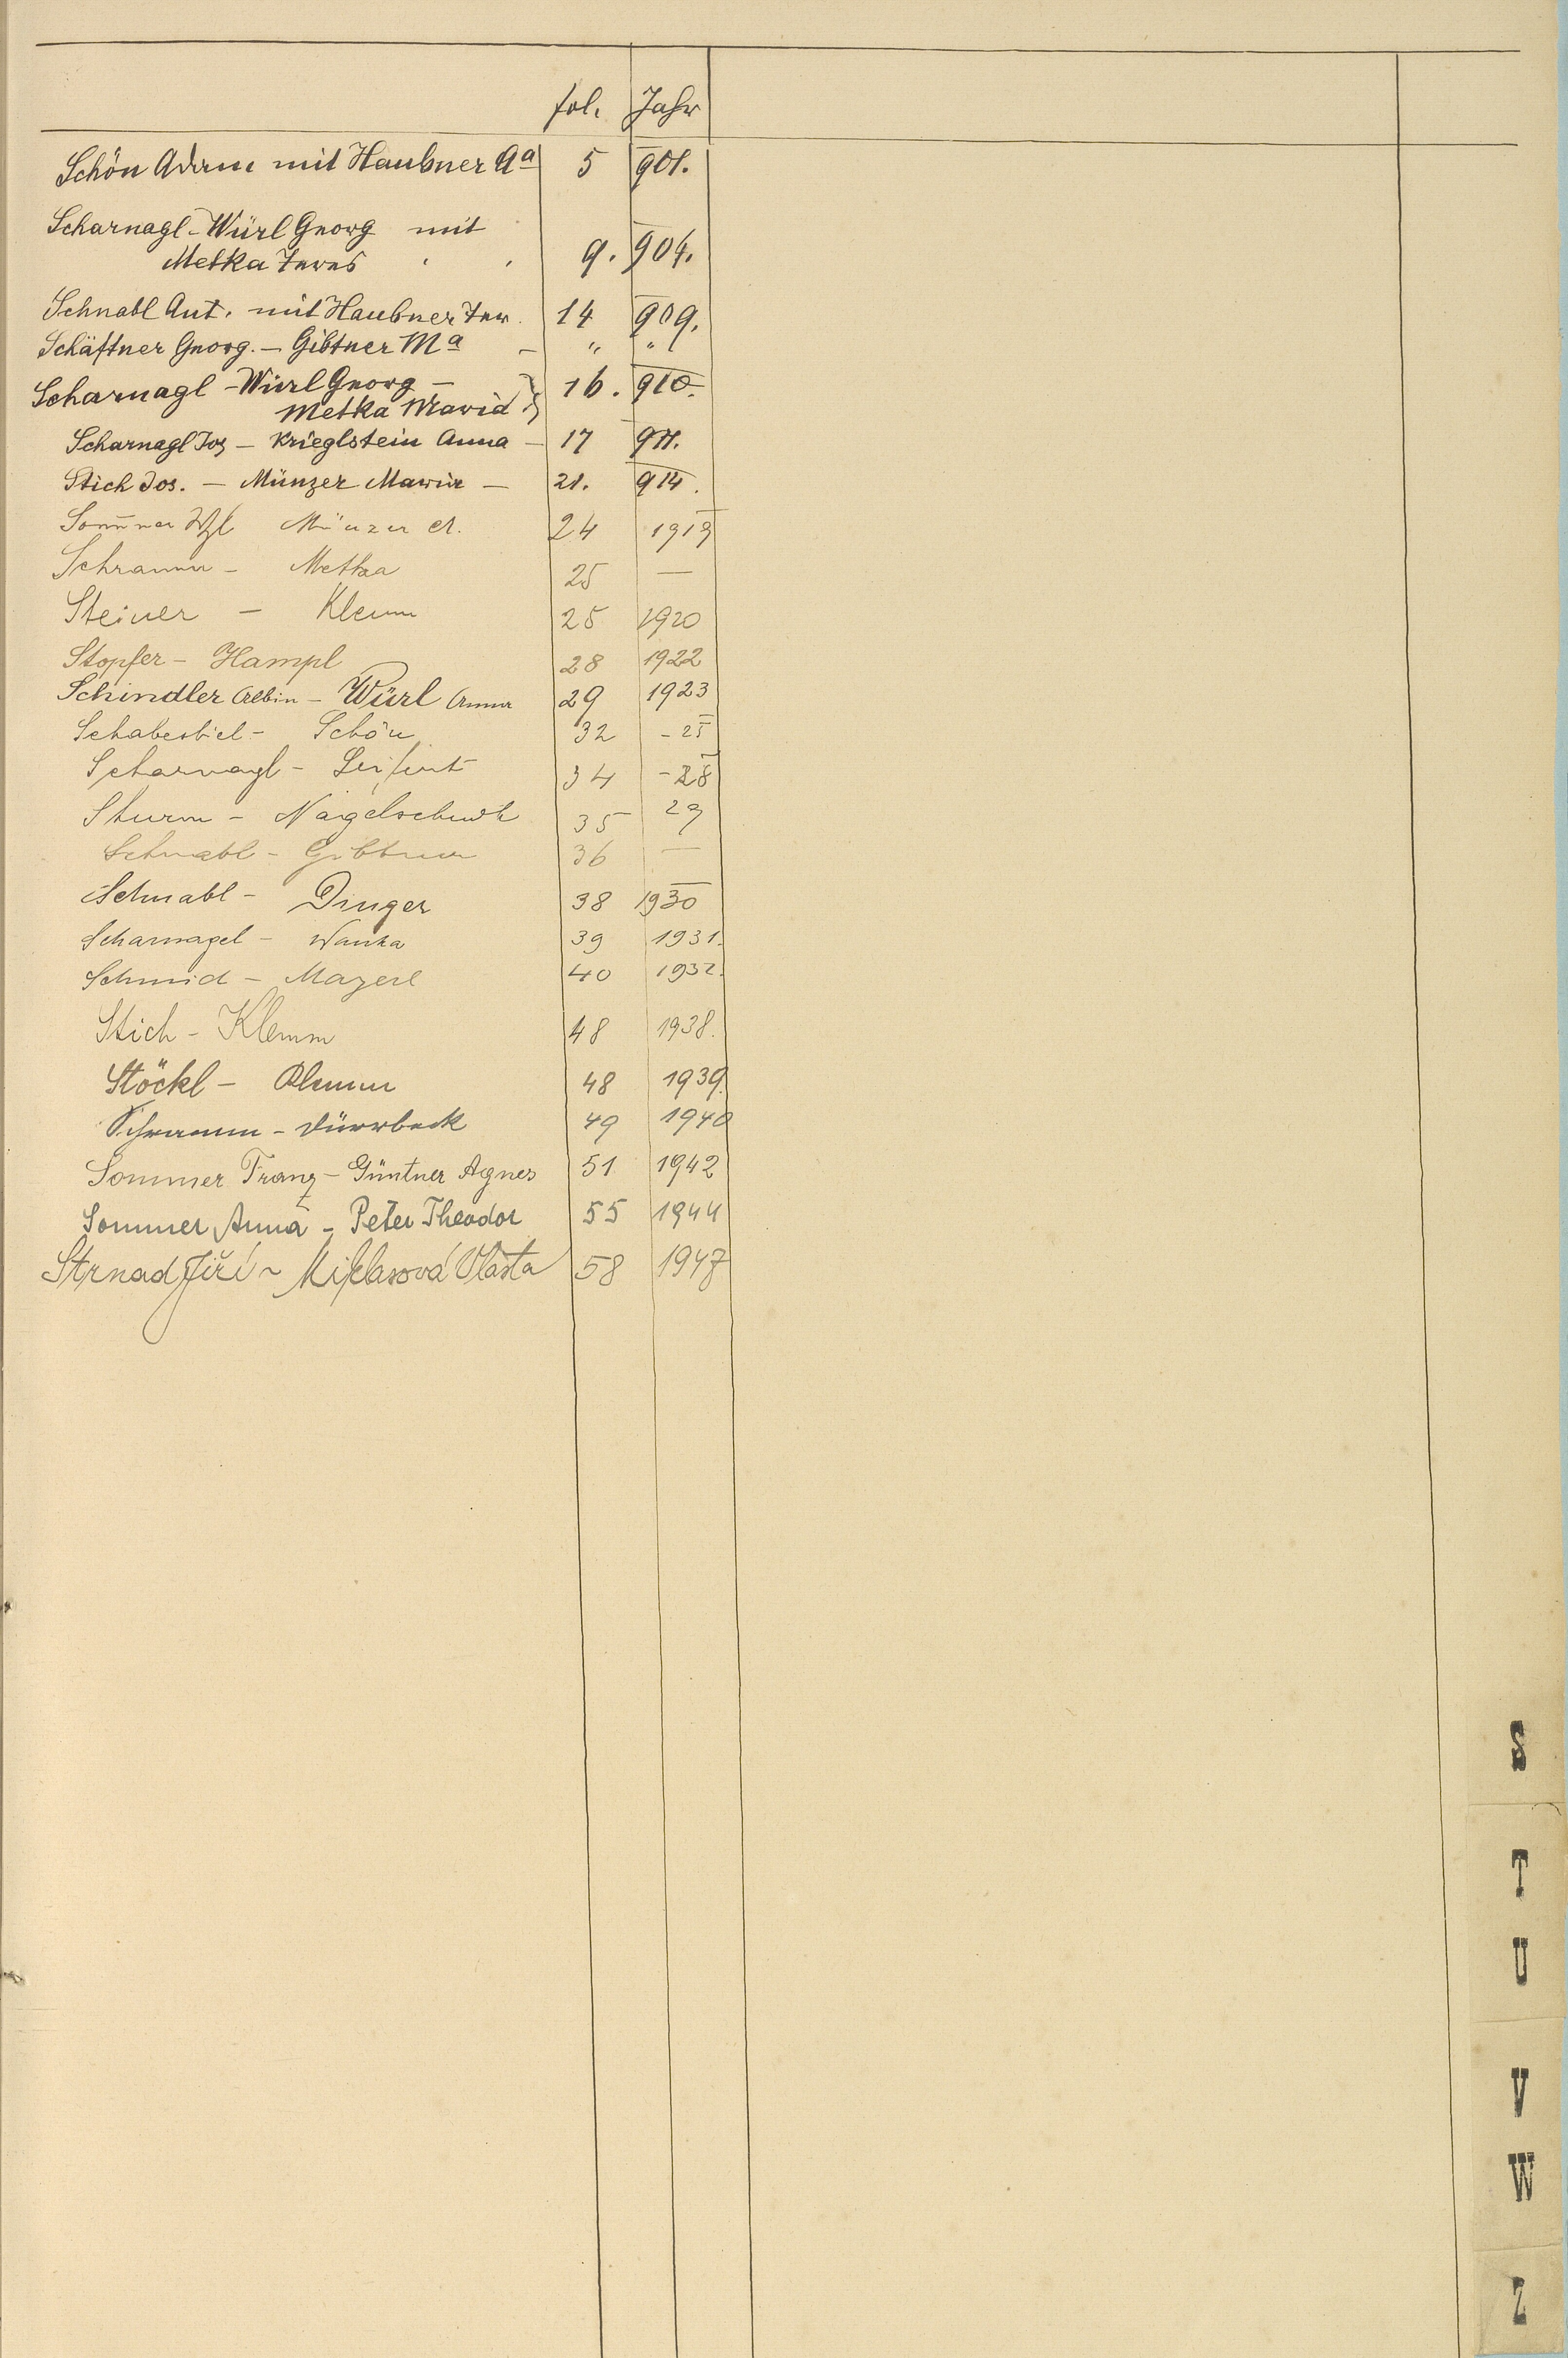 fol. Jahr
Schön Adam mit Haubner Aa 5 901.
Scharnagl-Würl Georg mit
Metka Teres 9. 904.
Schnabl Ant. mit Haubner Ter. 14 909.
Schäftner Georg. – Gibtner Ma – " "
Scharnagl - Würl Georg – 16. 910.
Metka Maria
Scharnagl Jos – Krieglstein Anna – 17 911.
Stich Jos. – Münzer Maria – 21. 914.
Sommer Münzer A. 24 1919
Schramm – Metka 25 —
Steiner – Klemm 25 1920
Stopfer – Hampl 28 1922
Schindler Albin – Würl Anna 29 1923
Schaberbiel – Schön 32 - 25
Scharnagl – 34 - 28
Sturm – Nagelschmidt 35 29
Schnabl – Gibtner 36 —
Schnabl – Dinger 38 1930
Scharnagel – Wanka 39 1931.
Schmid – Mayerl 40 1932.
Stich – Klemm 48 1938.
Stöckl – Klemm 48 1939.
Schramm – Dürrbeck 49 1940
Sommer Franz – Güntner Agnes 51 1942
Sommer Anna – Peter Theodor 55 1944
Strnad Jiří ~ Miklasová Vlasta 58 1947
S
T
U
V
W
Z